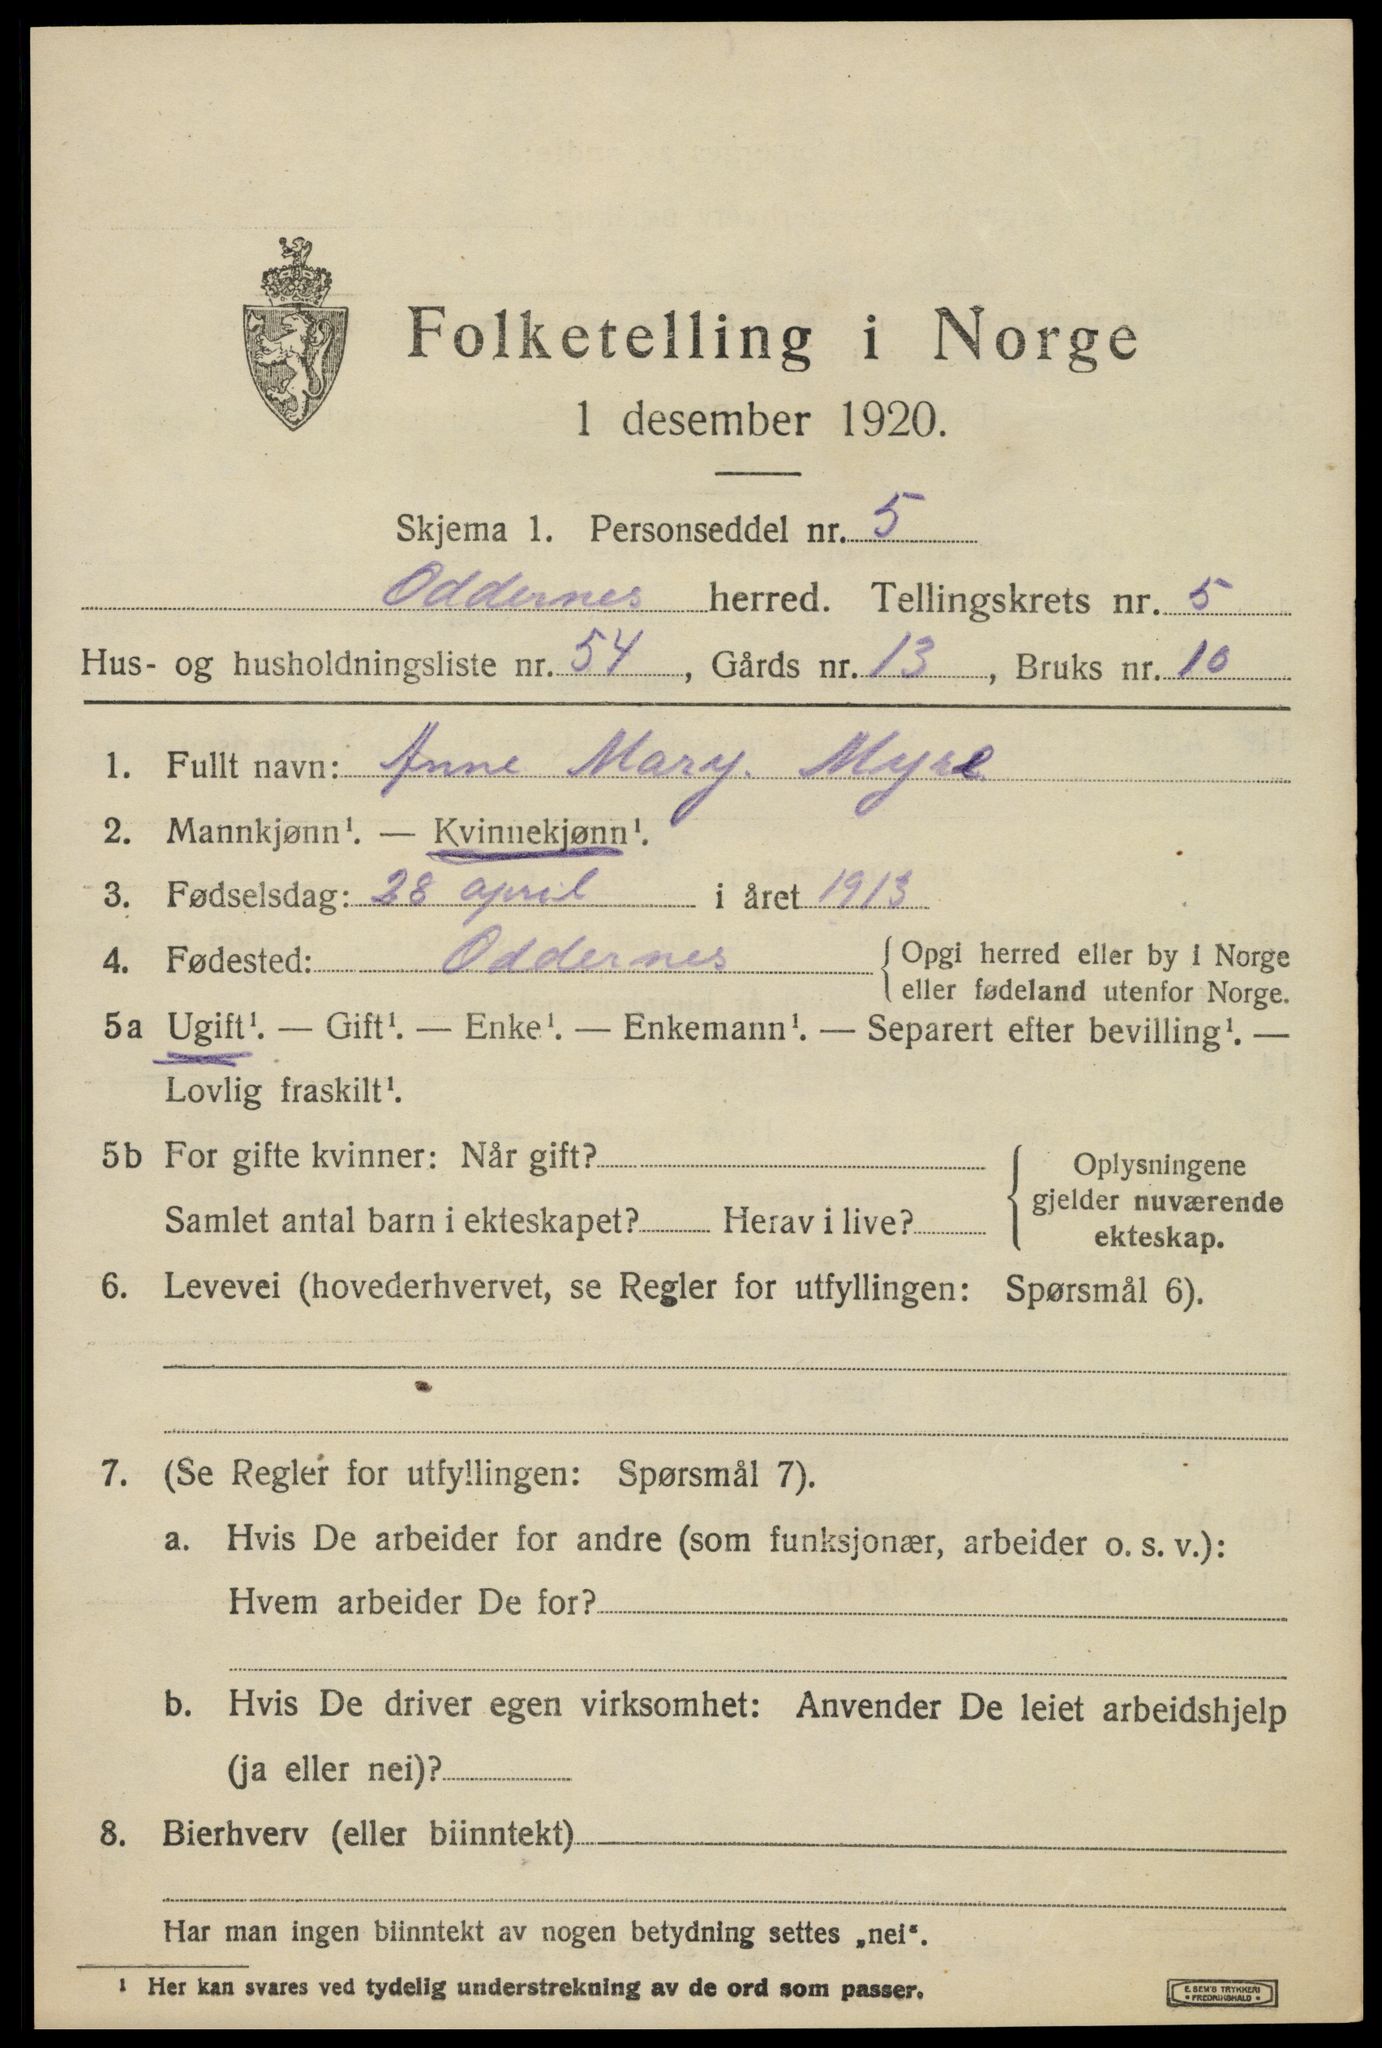 Folketelling i Norge
1 desember 1920.
Skjema 1. Personseddel nr. 5
Oddernes herred. Tellingskrets nr. 5
Hus- og husholdningsliste nr. 54, Gårds nr. 13, Bruks nr. 10
1. Fullt navn: Anne Mary. Myre
2. Mannkjønn¹. — Kvinnekjønn¹.
3. Fødselsdag: 28 april i året 1913
4. Fødested: Oddernes { Opgi herred eller by i Norge
eller fødeland utenfor Norge.
5a Ugift¹. — Gift¹. — Enke¹. — Enkemann¹. — Separert efter bevilling¹. —
Lovlig fraskilt¹.
5b For gifte kvinner: Når gift?
Samlet antal barn i ekteskapet? Herav i live?
{ Oplysningene
gjelder nuværende
ekteskap.
6. Levevei (hovederhvervet, se Regler for utfyllingen: Spørsmål 6).
7. (Se Regler for utfyllingen: Spørsmål 7).
a. Hvis De arbeider for andre (som funksjonær, arbeider o. s. v.):
Hvem arbeider De for?
b. Hvis De driver egen virksomhet: Anvender De leiet arbeidshjelp
(ja eller nei)?
8. Bierhverv (eller biinntekt)
Har man ingen biinntekt av nogen betydning settes „nei“.
¹ Her kan svares ved tydelig understrekning av de ord som passer.
E. SEM'S TRYKKERI
• FREDRIKSHALD •